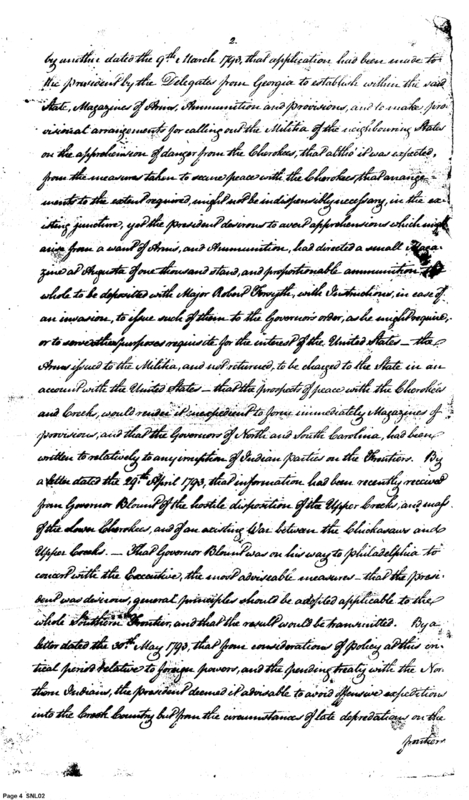 2.
by another dated the 9th March 1793, that application had been made to
the president by the Delegates from Georgia to establish within the said
State, Magazines of Arms, Ammunition and provisions, and to make pro
visional arrangements for calling out the Militia of the neighbouring States
on the apprehension of danger from the Cherokees, that altho' it was expected,
from the measures taken to secure peace with the Cherokees, that arrange
ments to the extent required, might not be indispensibly necessary, in the ex
isting juncture, yet the president desirous to avert apprehensions which might
arise from a want of Arms, and Ammunition, had directed a small Maga
zine at Augusta of one thousand stand, and proportionable ammunition the
whole to be deposited with Major Robert Forsyth, with Instructions, in case of
an invasion, to issue such of them to the Governors order, as he might require,
or to some other purposes requisite for the interest of the United States — the
Arms issued to the Militia, and not returned, to be charged to the State in an
account with the United States — that the prospects of peace with the Cherokees
and Creeks, would render it inexpedient to form immediately Magazines of
provisions, and that the Governors of North and South Carolina, had been
written to relatively to any irruption of Indian parties on the Frontiers. By
a letter dated the 29th April 1793, that information had been recently received
from Governor Blount of the hostile disposition of the Upper Creeks, and mass
of the lower Cherokees, and of an existing War between the Chickasaws and
Upper Creeks. — That Governor Blount was on his way to philadelphia to
concert with the Executive, the most adviseable measures — that the presi
dent was desirous, general principles should be adopted applicable to the
whole Southern Frontier, and that the result would be transmitted. By a
letter dated the 30th May 1793, that from considerations of policy at this cri
tical period relative to foreign powers, and the pending treaty with the Nor
thern Indians, the president deemed it advisable to avoid offensive expeditions
into the Creek Country but from the circumstances of late depredations on the
frontiers
Page 4 SNL02